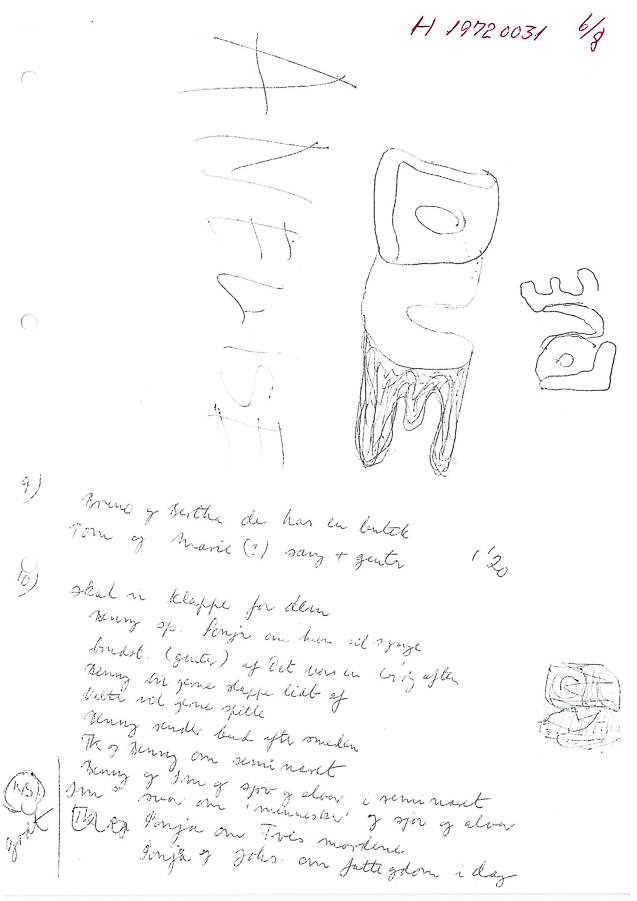 H 19720031 6/8
ANELISE
DUM
EVA
9)
Bruno og Bertha de har en butik
Tom og Marie (?) sang + guitr
1'20
10)
skal vi klappe for dem
Benny sp. Sonja om hun vil synge
budst. (guitr) af Det var en lørdag aften
Benny vil gerne slappe lidt af
vil gerne spille
Benny sender bud efter smeden
TK og Benny om seminaret
Benny og Im og sjov og alvor i seminaret
Im svar om 'mennesker' og sjov og alvor
Sonja om Tvis mordene
Sonja og Johs. om fattigdom i dag
NB!
godt